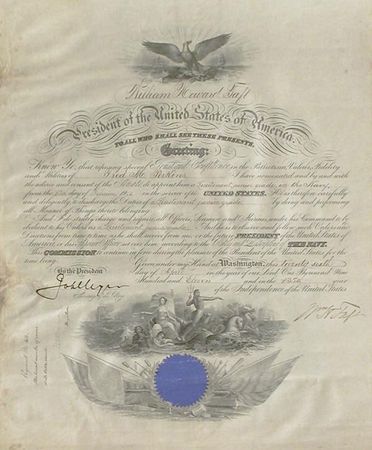 William Howard Taft
President of the United States of America.
TO ALL WHO SHALL SEE THESE PRESENTS,
Greeting:
Know Ye, that reposing special Trust and Confidence in the Patriotism, Valor, Fidelity
and Abilities of Fred M. Perkins I have nominated and by and with
the advice and consent of the Senate do appoint him a Lieutenant junior grade in the Navy
from the day of in the service of the UNITED STATES. He is therefore carefully
and diligently to discharge the Duties of a Lieutenant junior grade by doing and performing
all Manner of Things thereto belonging.
And I do strictly charge and require all Officers, Seamen and Marines under his Command to be
obedient to his Orders as Lieutenant junior grade And he is to observe and follow such Orders and
Directions from time to time as he shall receive from me or the future PRESIDENT of the United States of
America or his Superior Officer set over him, according to the Rules and Discipline of THE NAVY.
This COMMISSION to continue in force during the pleasure of the President of the United States for the
time being.
Given under my Hand at Washington, this twenty sixth
day of April in the year of our Lord One Thousand Nine
Hundred and Eleven and in the 135th year
of the Independence of the United States
By the President
Secretary of the Navy
Wm H Taft